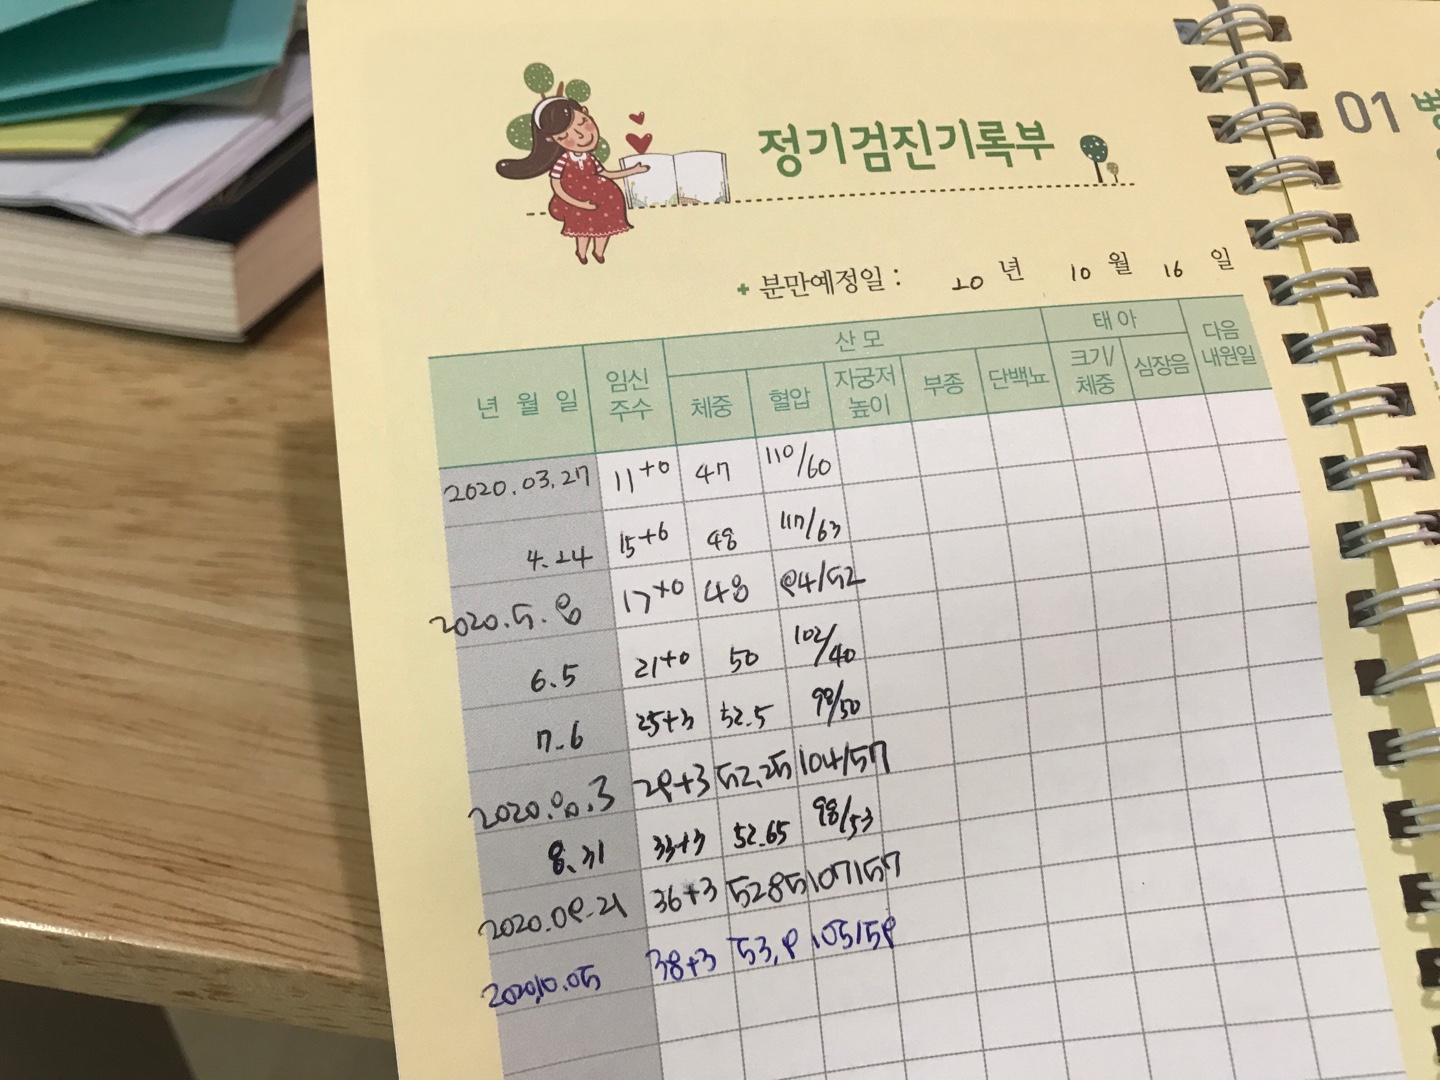 정기검진기록부
01
+ 분만예정일 : 20 년 10 월 16 일
년 월 일 임신 주수 산모 태아 다음 내원일
체중 혈압 자궁저 높이 부종 단백뇨 크기/ 체중 심장음
2020.03.27 11+0 47 110/60
4.24 15+6 48 117/63
2020.5.8 17+0 48 94/52
6.5 21+0 50 102/40
7.6 25+3 52.5 99/50
2020.8.3 29+3 52.25 104/57
8.31 33+3 52.65 98/53
2020.09.21 36+3 5285 107/57
2020.10.05 38+3 53.9 105/59